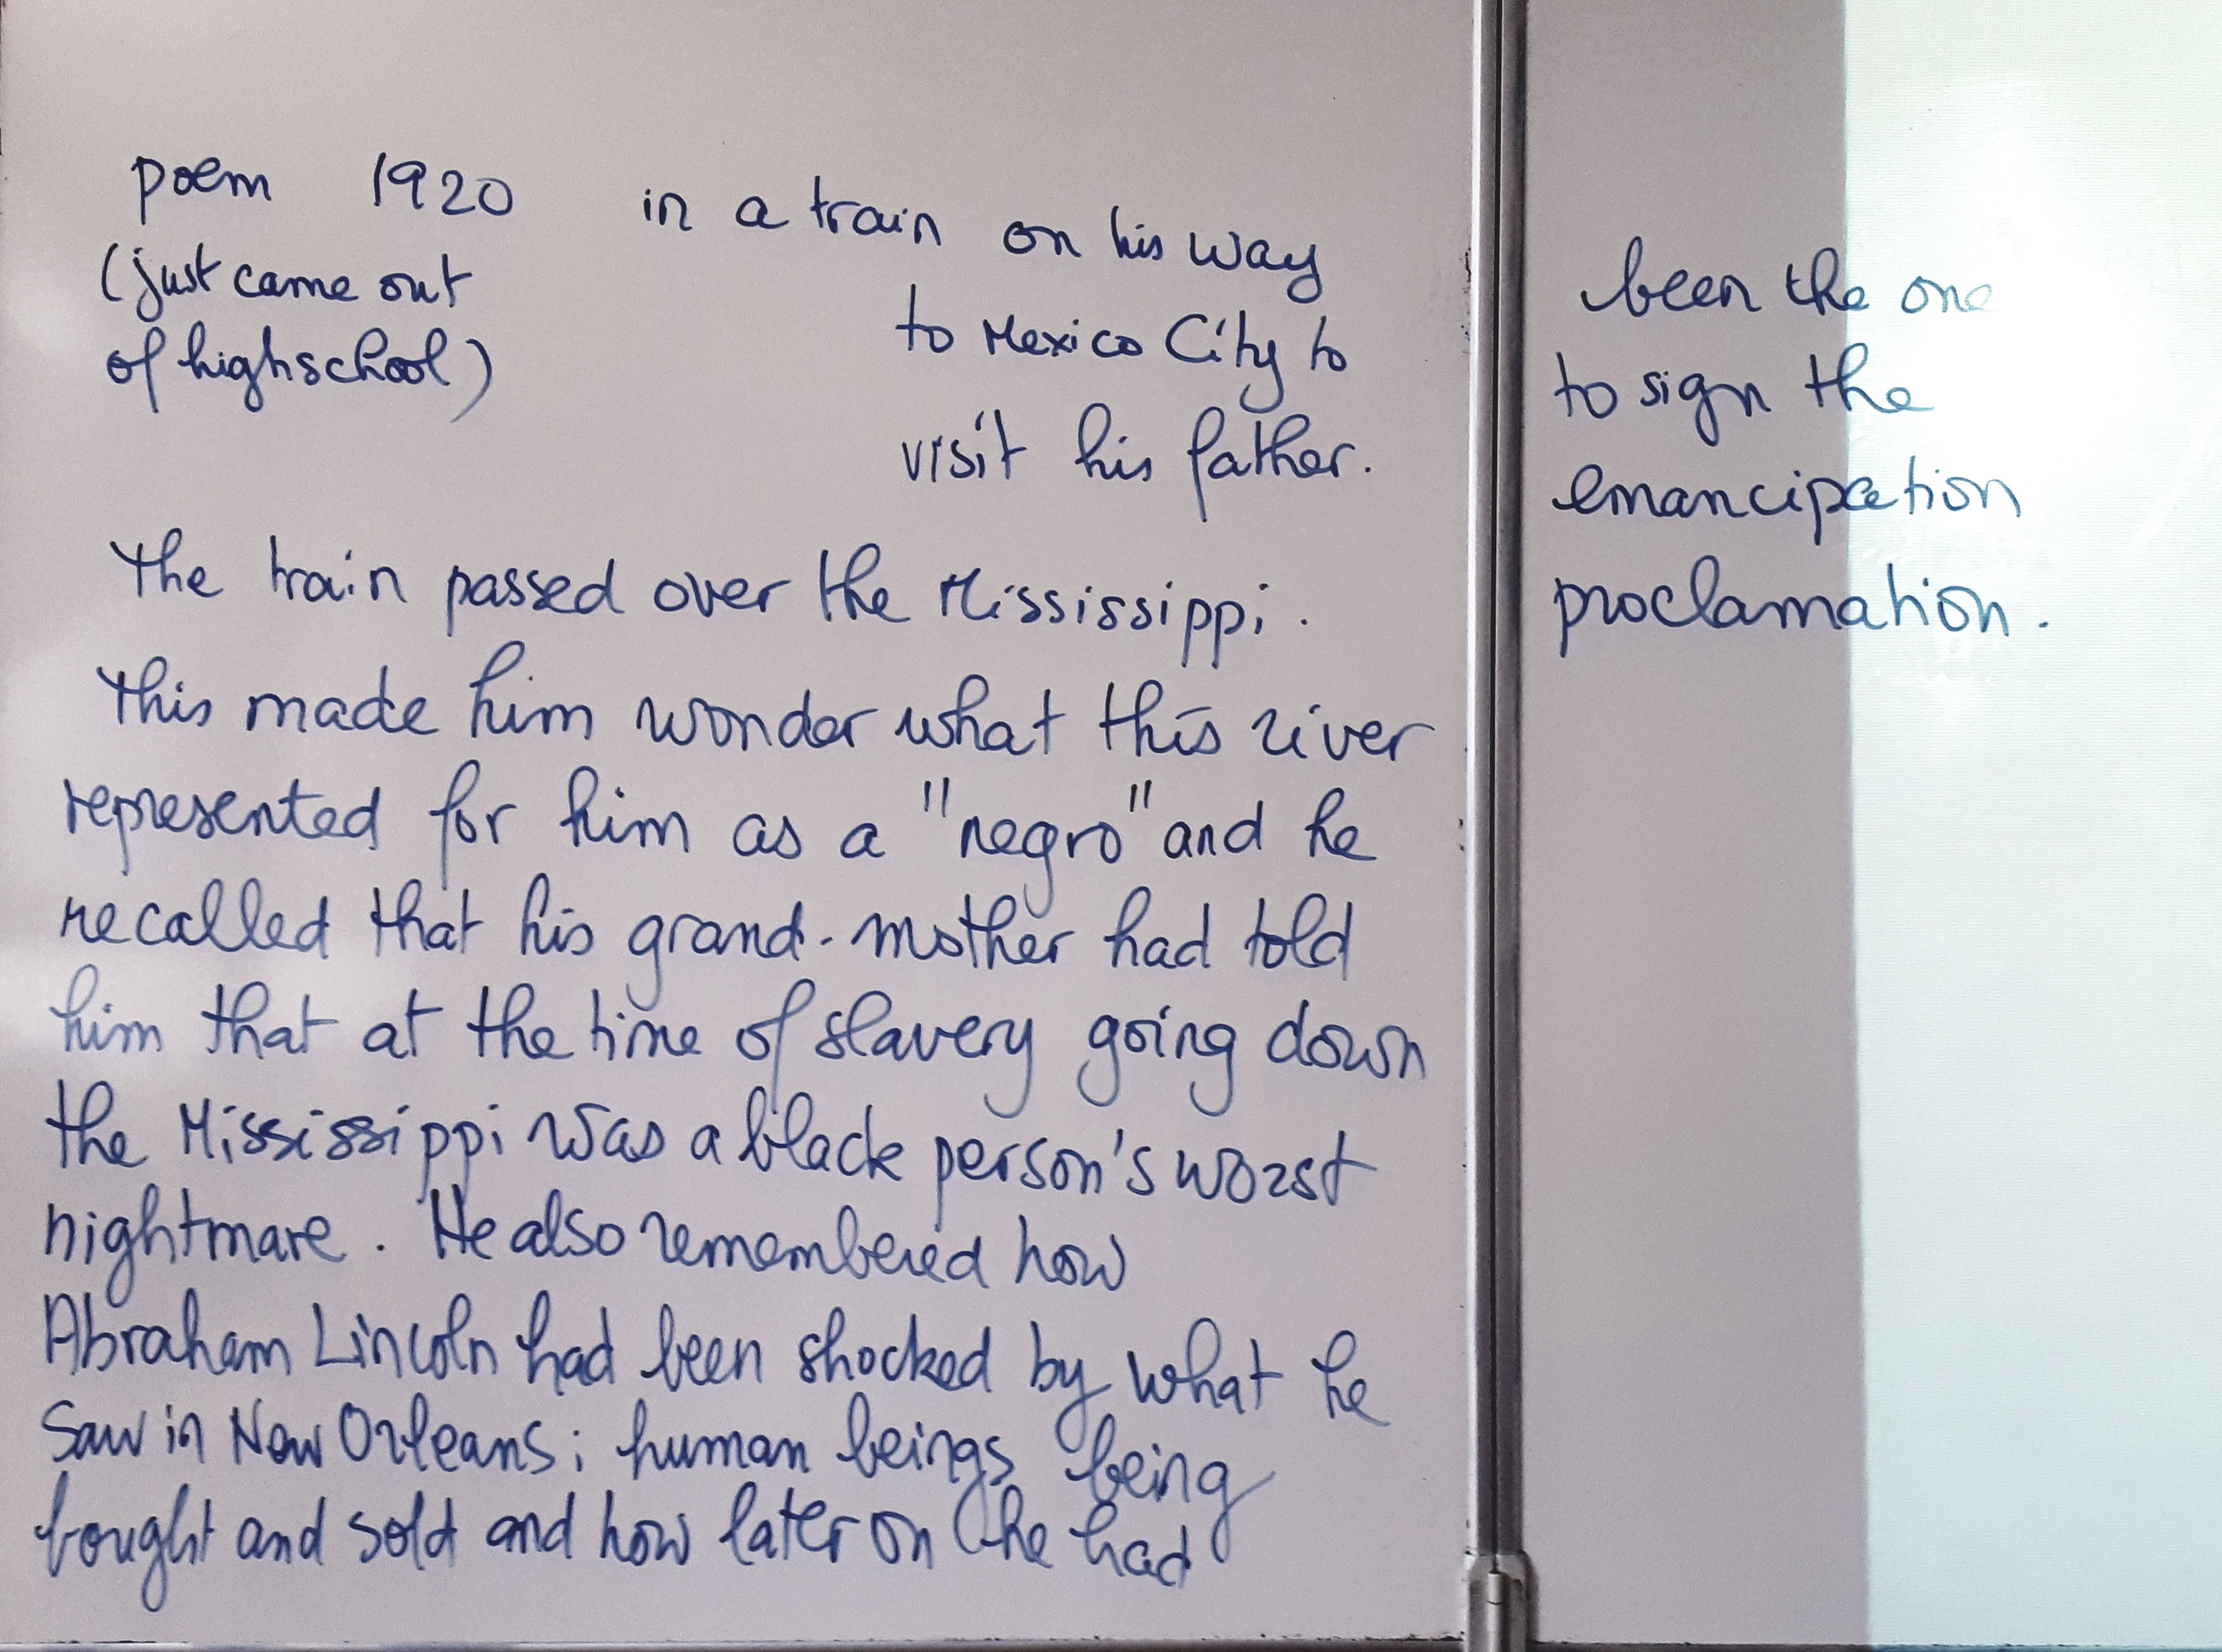 poem 1920 in a train on his way
(just came out
of highschool)
to Mexico City to
visit his father.
The train passed over the Mississippi.
This made him wonder what this river
represented for him as a "negro" and he
recalled that his grand-mother had told
him that at the time of slavery going down
the Mississippi was a black person's worst
nightmare. He also remembered how
Abraham Lincoln had been shocked by what he
saw in New Orleans; human beings being
bought and sold and how later on he had
been the one
to sign the
emancipation
proclamation.